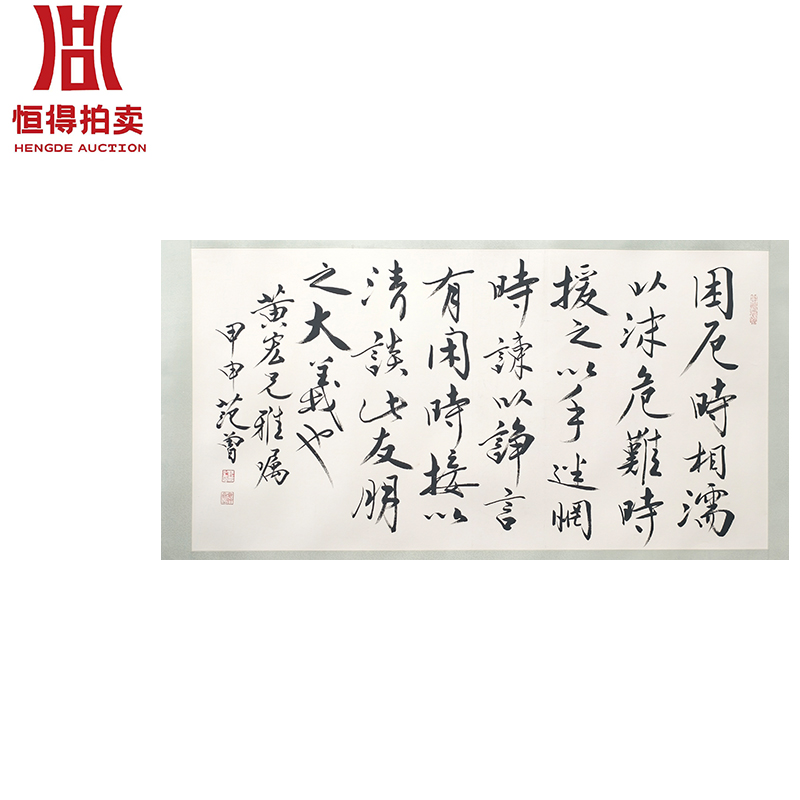 恒得拍卖
HENGDE AUCTION
困厄時相濡
以沫危難時
援之以手迷惘
時諫以諍言
有闲時接以
清談此友朋
之大義也
黄宏兄雅嘱
甲申范曾